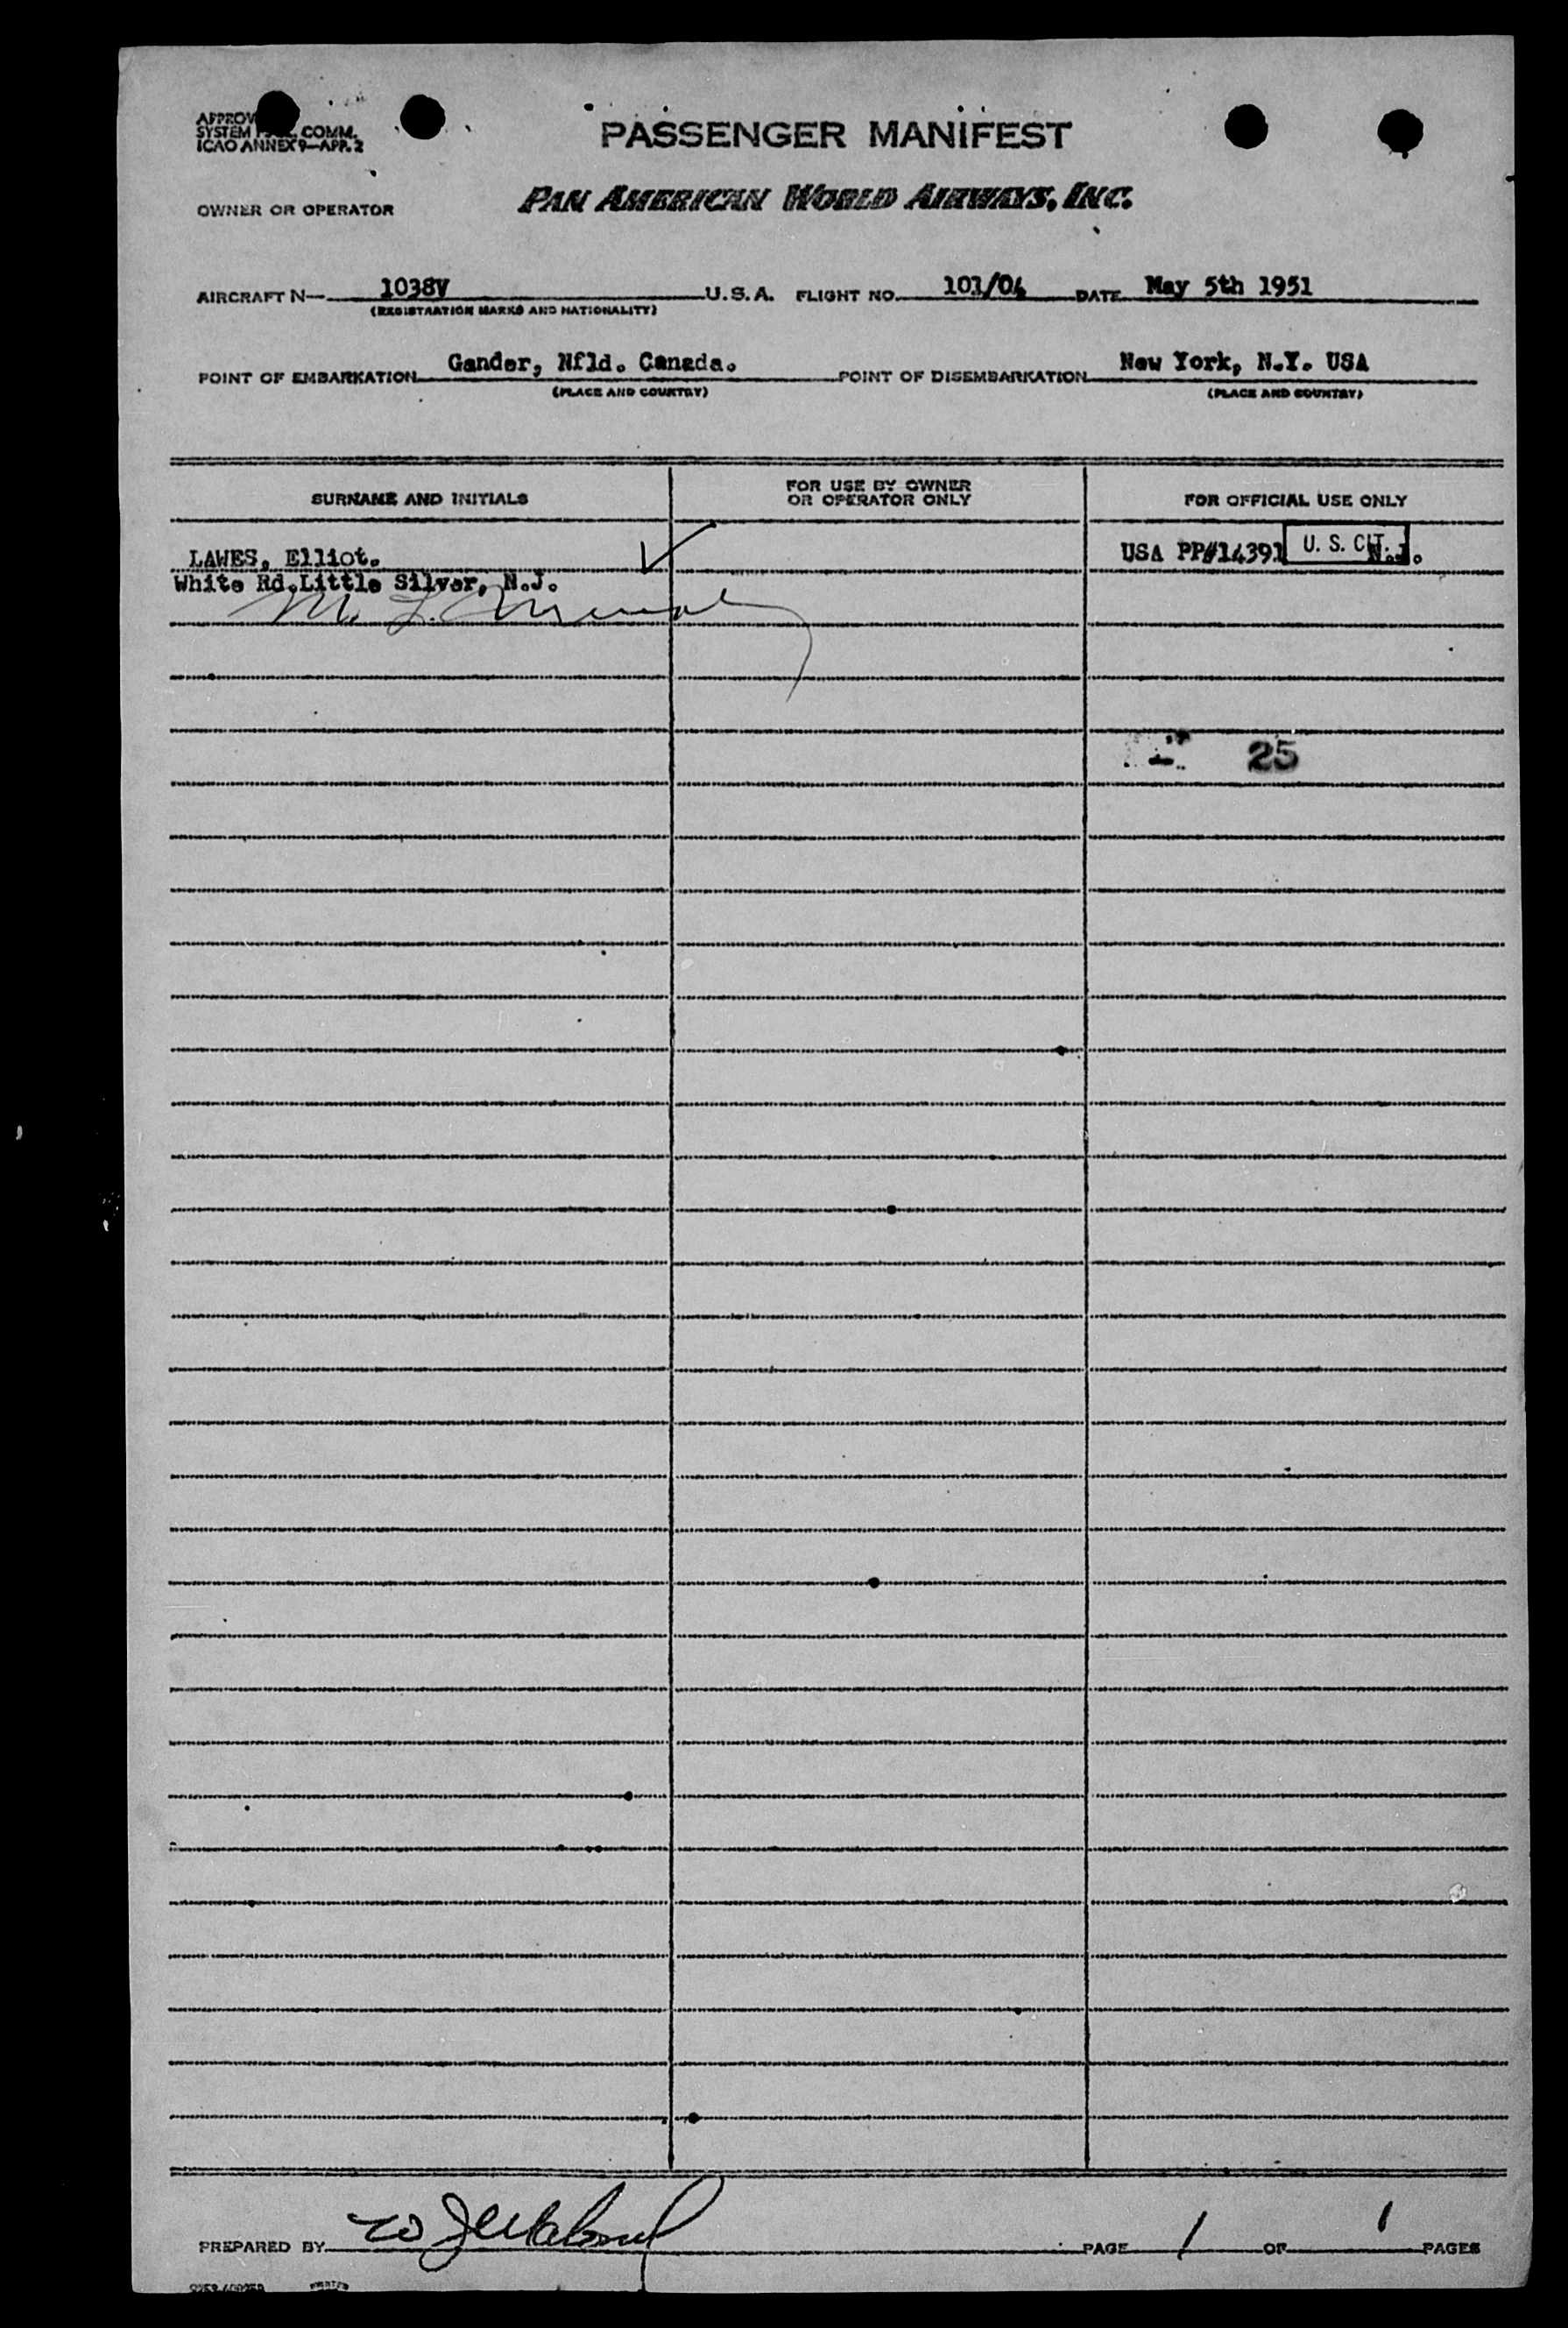 PASSENGER MANIFEST
SYSTEM COMM.
ICAO ANNEX 9—APP. 2
OWNER OR OPERATOR PAN AMERICAN WORLD AIRWAYS, INC.
AIRCRAFT N— 1038V U.S.A. FLIGHT NO. 101/04 DATE May 5th 1951
(REGISTRATION MARKS AND NATIONALITY)
POINT OF EMBARKATION Gander, Nfld. Canada. POINT OF DISEMBARKATION New York, N.Y. USA
(PLACE AND COUNTRY) (PLACE AND COUNTRY)
SURNAME AND INITIALS FOR USE BY OWNER OR OPERATOR ONLY FOR OFFICIAL USE ONLY
LAWES, Elliot. USA PP#14391 U. S. CIT. N.J.
White Rd.Little Silver, N.J.
25
PREPARED BY PAGE 1 OF 1 PAGES